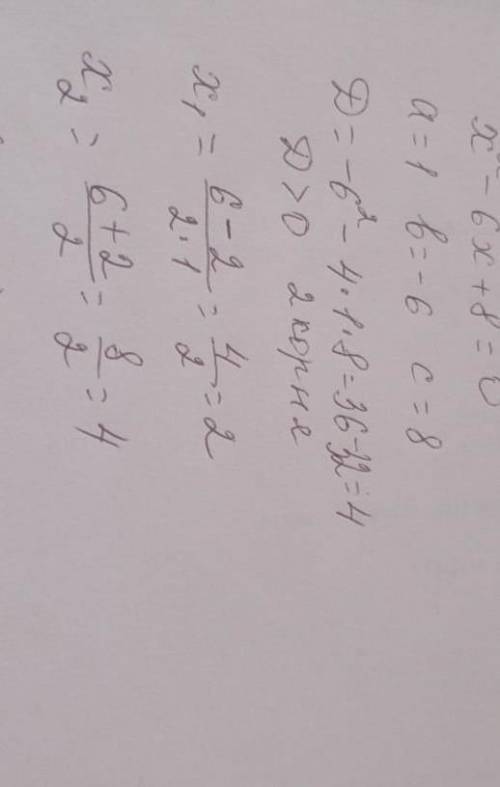 x² - 6x + 8 = 0
a = 1 b = -6 c = 8
D = -6² - 4·1·8 = 36-32 = 4
D > 0 2 корня
x₁ = (6 - 2)/(2·1) = 4/2 = 2
x₂ = (6 + 2)/2 = 8/2 = 4